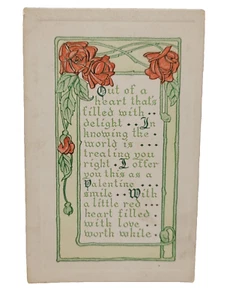 Out of a
heart that's
filled with ..
delight .. In
knowing the ..
world is ...
treating you
right . I offer
you this as a
Valentine ...
smile .. With
a little red ...
heart filled ..
with love ...
worth while .